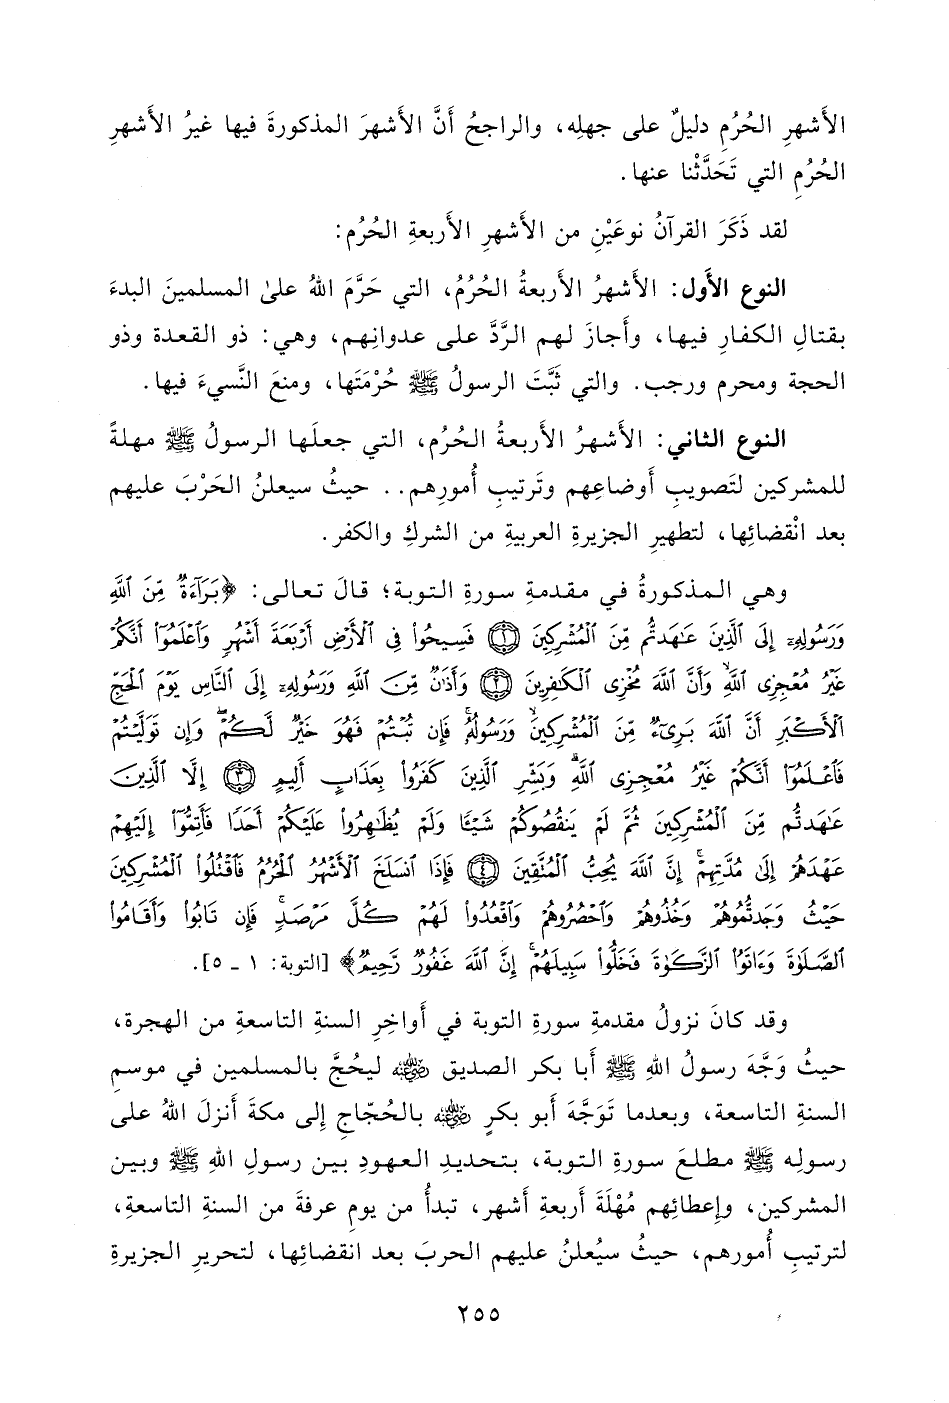 الأَشهرِ الحُرُمِ دليلٌ على جهلِه، والراجحُ أَنَّ الأَشهرَ المذكورةَ فيها غيرُ الأَشهرِ
الحُرُمِ التي تَحَدَّثْنا عنها.
لقد ذَكَرَ القرآنُ نوعَيْنِ من الأَشهرِ الأَربعةِ الحُرُم:
النوع الأَول: الأَشهرُ الأَربعةُ الحُرُمُ، التي حَرَّمَ اللهُ علىٰ المسلمينَ البدءَ
بقتالِ الكفارِ فيها، وأَجازَ لهم الرَّدَّ على عدوانِهم، وهي: ذو القعدة وذو
الحجة ومحرم ورجب. والتي ثَبَّتَ الرسولُ ﷺ حُرْمَتَها، ومنعَ النَّسيءَ فيها.
النوع الثاني: الأَشهرُ الأَربعةُ الحُرُم، التي جعلَها الرسولُ ﷺ مهلةً
للمشركين لتَصويبِ أَوضاعِهم وتَرتيبِ أُمورِهم.. حيثُ سيعلنُ الحَرْبَ عليهم
بعد انْقضائِها، لتطهيرِ الجزيرةِ العربيةِ من الشركِ والكفر.
وهي المذكورةُ في مقدمةِ سورةِ التوبة؛ قالَ تعالى: ﴿بَرَآءَةٌ مِّنَ ٱللَّهِ
وَرَسُولِهِۦٓ إِلَى ٱلَّذِينَ عَٰهَدتُّم مِّنَ ٱلْمُشْرِكِينَ ١ فَسِيحُوا۟ فِى ٱلْأَرْضِ أَرْبَعَةَ أَشْهُرٍ وَٱعْلَمُوٓا۟ أَنَّكُمْ
غَيْرُ مُعْجِزِى ٱللَّهِ ۙ وَأَنَّ ٱللَّهَ مُخْزِى ٱلْكَٰفِرِينَ ٢ وَأَذَٰنٌ مِّنَ ٱللَّهِ وَرَسُولِهِۦٓ إِلَى ٱلنَّاسِ يَوْمَ ٱلْحَجِّ
ٱلْأَكْبَرِ أَنَّ ٱللَّهَ بَرِىٓءٌ مِّنَ ٱلْمُشْرِكِينَ ۙ وَرَسُولُهُۥ ۚ فَإِن تُبْتُمْ فَهُوَ خَيْرٌ لَّكُمْ ۖ وَإِن تَوَلَّيْتُمْ
فَٱعْلَمُوٓا۟ أَنَّكُمْ غَيْرُ مُعْجِزِى ٱللَّهِ ۗ وَبَشِّرِ ٱلَّذِينَ كَفَرُوا۟ بِعَذَابٍ أَلِيمٍ ٣ إِلَّا ٱلَّذِينَ
عَٰهَدتُّم مِّنَ ٱلْمُشْرِكِينَ ثُمَّ لَمْ يَنقُصُوكُمْ شَيْـًٔا وَلَمْ يُظَٰهِرُوا۟ عَلَيْكُمْ أَحَدًا فَأَتِمُّوٓا۟ إِلَيْهِمْ
عَهْدَهُمْ إِلَىٰ مُدَّتِهِمْ ۚ إِنَّ ٱللَّهَ يُحِبُّ ٱلْمُتَّقِينَ ٤ فَإِذَا ٱنسَلَخَ ٱلْأَشْهُرُ ٱلْحُرُمُ فَٱقْتُلُوا۟ ٱلْمُشْرِكِينَ
حَيْثُ وَجَدتُّمُوهُمْ وَخُذُوهُمْ وَٱحْصُرُوهُمْ وَٱقْعُدُوا۟ لَهُمْ كُلَّ مَرْصَدٍ ۚ فَإِن تَابُوا۟ وَأَقَامُوا۟
ٱلصَّلَوٰةَ وَءَاتَوُا۟ ٱلزَّكَوٰةَ فَخَلُّوا۟ سَبِيلَهُمْ ۚ إِنَّ ٱللَّهَ غَفُورٌ رَّحِيمٌ﴾ [التوبة: ١ - ٥].
وقد كانَ نزولُ مقدمةِ سورةِ التوبة في أَواخِرِ السنةِ التاسعةِ من الهجرة،
حيثُ وَجَّهَ رسولُ اللهِ ﷺ أَبا بكر الصديق رضي الله عنه ليحُجَّ بالمسلمين في موسمِ
السنةِ التاسعة، وبعدما تَوَجَّهَ أَبو بكرٍ رضي الله عنه بالحُجّاجِ إِلى مكةَ أَنزلَ اللهُ على
رسولِه ﷺ مطلعَ سورةِ التوبة، بتحديدِ العهودِ بين رسولِ اللهِ ﷺ وبين
المشركين، وإِعطائِهم مُهْلَةَ أَربعةِ أَشهر، تبدأُ من يومِ عرفةَ من السنةِ التاسعةِ،
لترتيبِ أُمورهم، حيثُ سيُعلنُ عليهم الحربَ بعد انقضائِها، لتحريرِ الجزيرةِ
٢٥٥